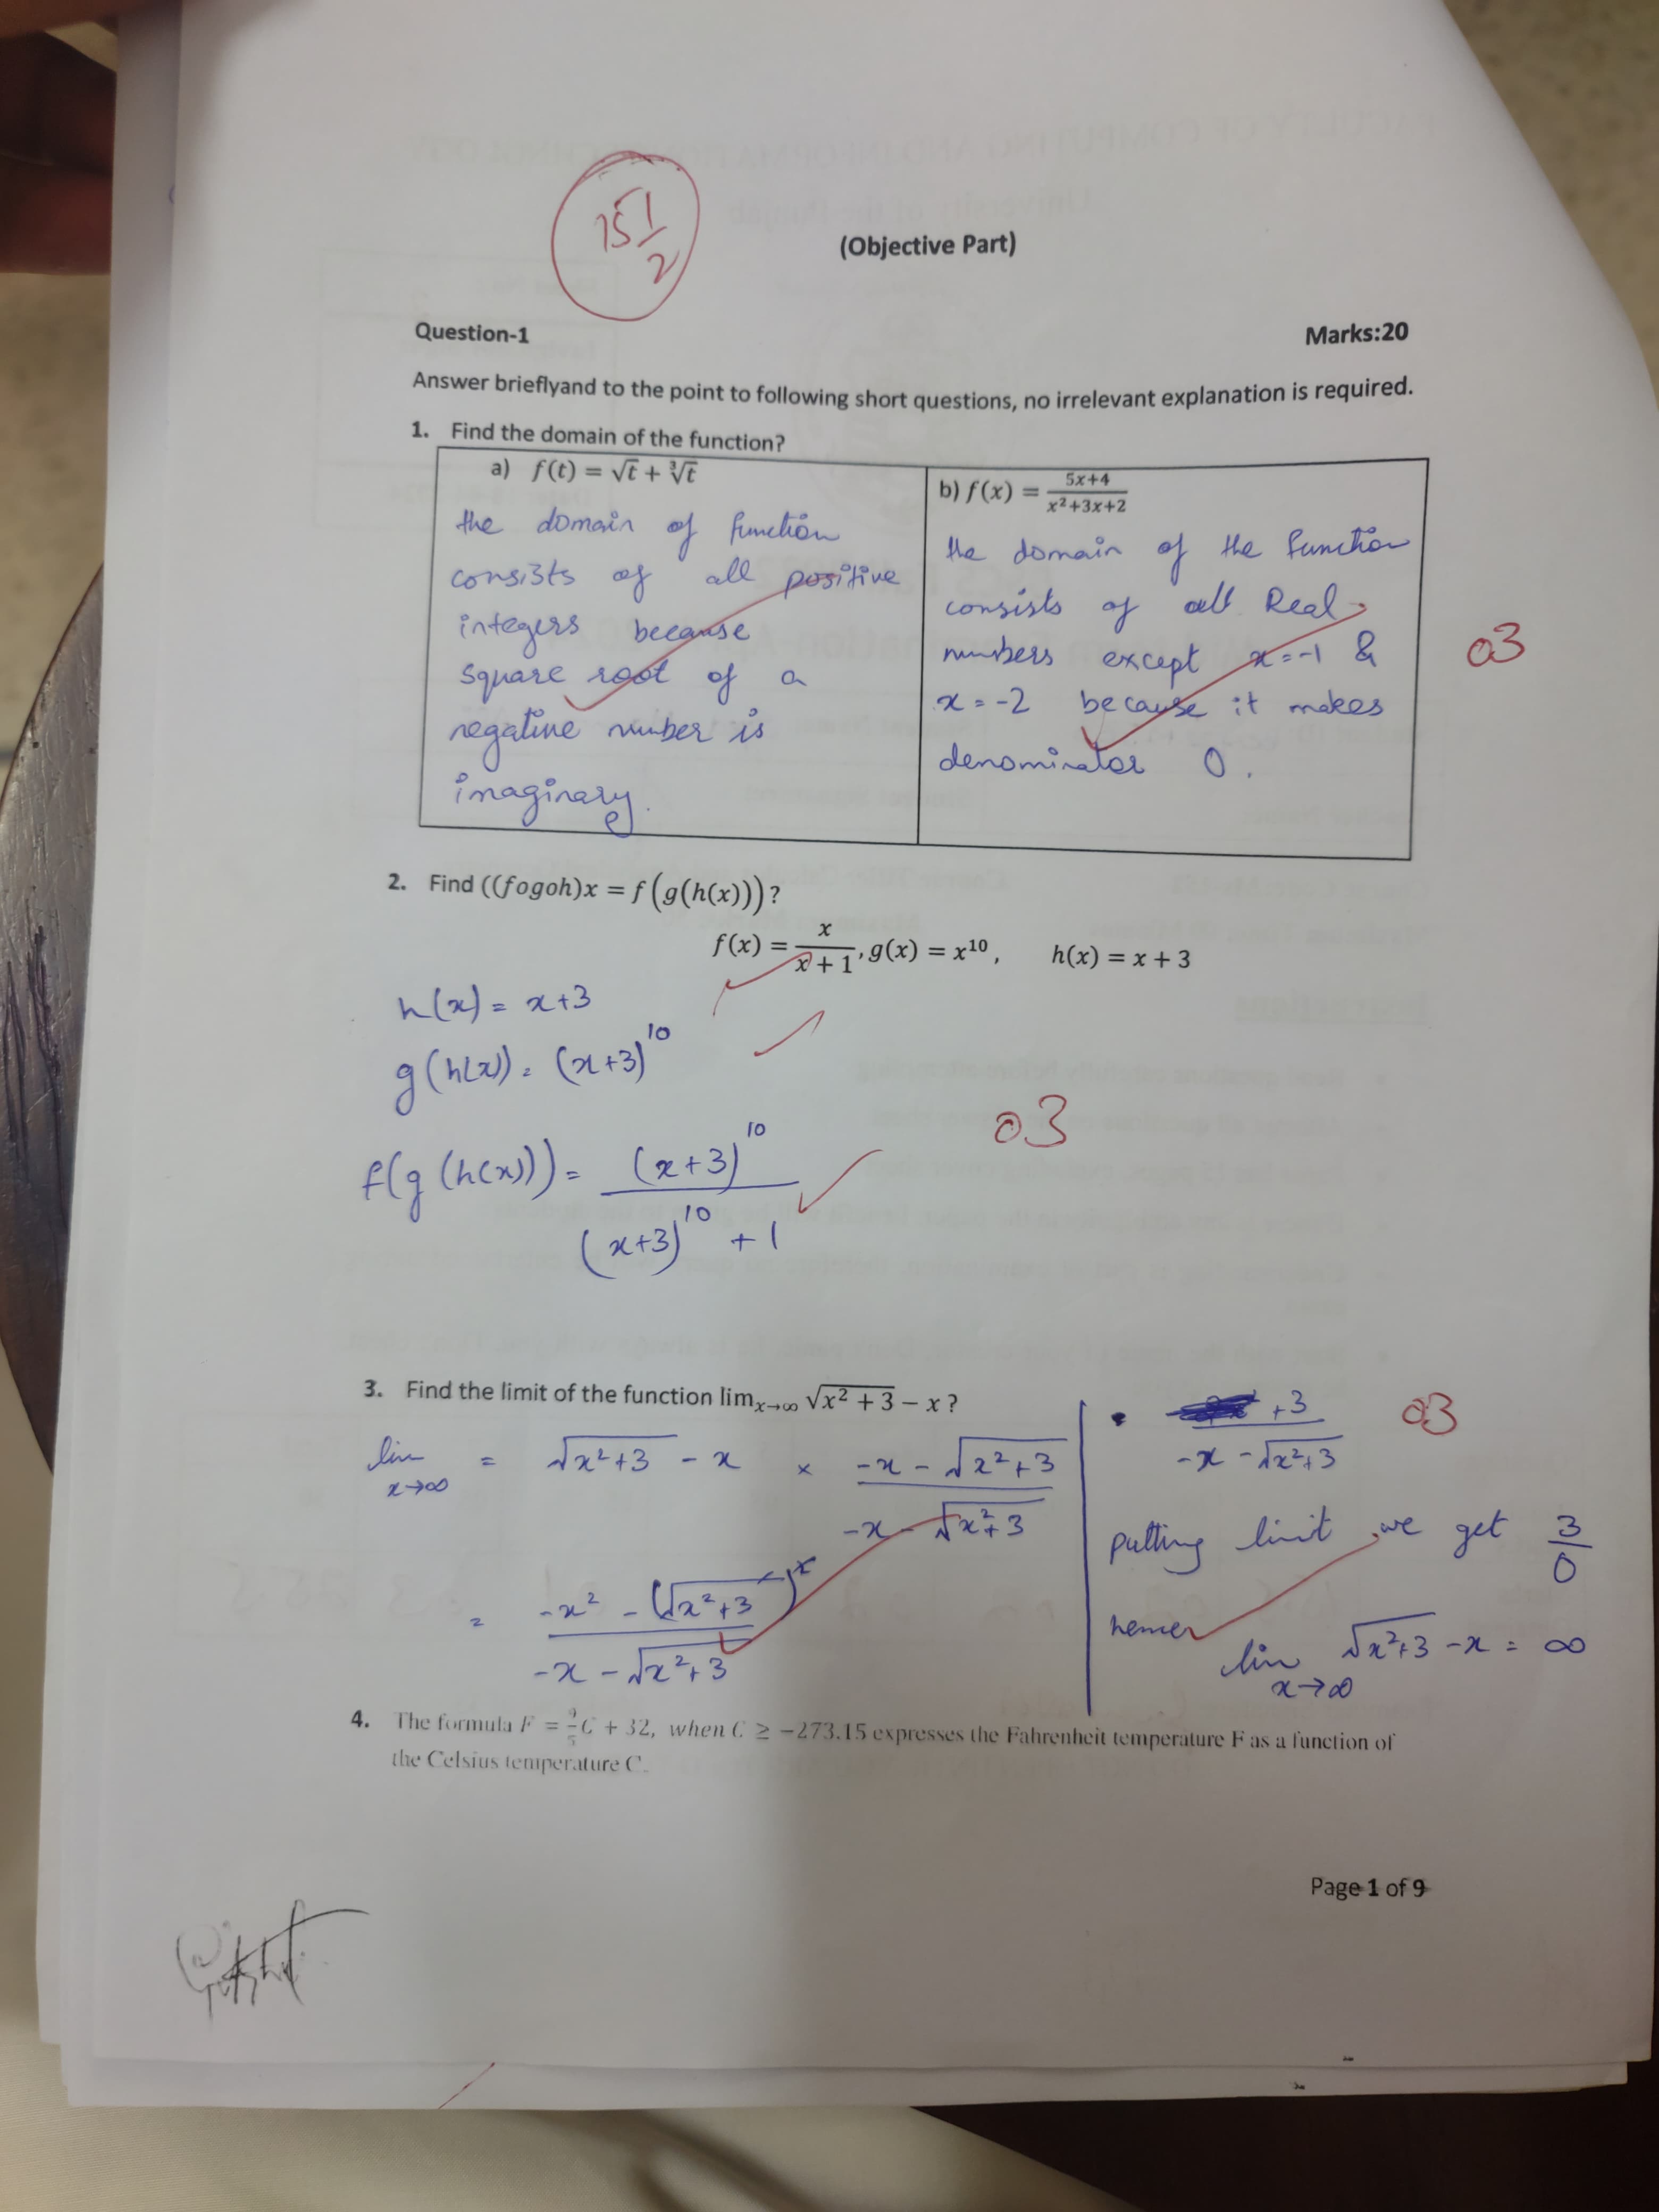 15 1/2
(Objective Part)
Question-1 Marks:20
Answer brieflyand to the point to following short questions, no irrelevant explanation is required.
1. Find the domain of the function?
a) f(t) = √t + ∛t
the domain of function
consists of all positive
integers because
square root of a
negative number is
imaginary.
b) f(x) = (5x+4)/(x²+3x+2)
the domain of the function
consists of all Real
numbers except x=-1 &
x=-2 because it makes
denominator 0.
03
2. Find ((fogoh)x = f(g(h(x)))?
f(x) = x/(x+1), g(x) = x¹⁰, h(x) = x + 3
h(x) = x+3
g(h(x)) = (x+3)¹⁰
03
f(g(h(x))) = (x+3)¹⁰/((x+3)¹⁰ + 1)
3. Find the limit of the function lim x→∞ √(x² + 3) − x ?
lim x→∞ = √(x²+3) - x × (-x - √(x²+3))/(-x - √(x²+3))
= (-x² - (√(x²+3))²)/(-x - √(x²+3))
+3/(-x - √(x²+3))
03
putting limit we get 3/0
lim x→∞ √(x²+3) - x = ∞
4. The formula F = 9/5 C + 32, when C ≥ −273.15 expresses the Fahrenheit temperature F as a function of
the Celsius temperature C.
Page 1 of 9